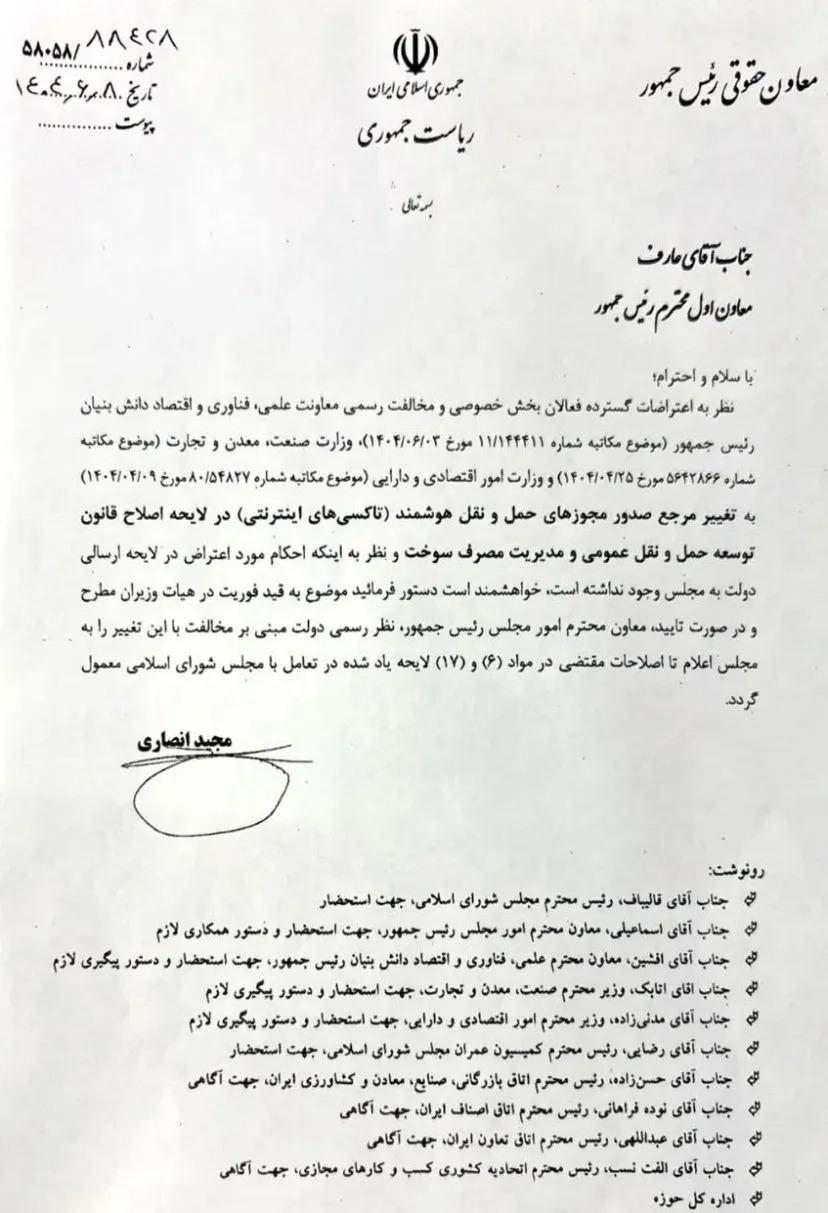 معاون حقوقی رئیس جمهور
جمهوری اسلامی ایران
ریاست جمهوری
شماره ۵۸۰۵۸/۸۸۴۲۸
تاریخ ۱۴۰۴،۶،۸
پیوست ..............
بسمه تعالی
جناب آقای عارف
معاون اول محترم رئیس جمهور
با سلام و احترام؛
نظر به اعتراضات گسترده فعالان بخش خصوصی و مخالفت رسمی معاونت علمی، فناوری و اقتصاد دانش بنیان
رئیس جمهور (موضوع مکاتبه شماره ۱۱/۱۴۴۴۱۱ مورخ ۱۴۰۴/۰۶/۰۳)، وزارت صنعت، معدن و تجارت (موضوع مکاتبه
شماره ۵۶۴۲۸۶۶ مورخ ۱۴۰۴/۰۴/۲۵) و وزارت امور اقتصادی و دارایی (موضوع مکاتبه شماره ۸۰/۵۴۸۲۷ مورخ ۱۴۰۴/۰۴/۰۹)
به تغییر مرجع صدور مجوزهای حمل و نقل هوشمند (تاکسی‌های اینترنتی) در لایحه اصلاح قانون
توسعه حمل و نقل عمومی و مدیریت مصرف سوخت و نظر به اینکه احکام مورد اعتراض در لایحه ارسالی
دولت به مجلس وجود نداشته است، خواهشمند است دستور فرمائید موضوع به قید فوریت در هیات وزیران مطرح
و در صورت تایید، معاون محترم امور مجلس رئیس جمهور، نظر رسمی دولت مبنی بر مخالفت با این تغییر را به
مجلس اعلام تا اصلاحات مقتضی در مواد (۶) و (۱۷) لایحه یاد شده در تعامل با مجلس شورای اسلامی معمول
گردد.
مجید انصاری
رونوشت:
جناب آقای قالیباف، رئیس محترم مجلس شورای اسلامی، جهت استحضار
جناب آقای اسماعیلی، معاون محترم امور مجلس رئیس جمهور، جهت استحضار و دستور همکاری لازم
جناب آقای افشین، معاون محترم علمی، فناوری و اقتصاد دانش بنیان رئیس جمهور، جهت استحضار و دستور پیگیری لازم
جناب اقای اتابک، وزیر محترم صنعت، معدن و تجارت، جهت استحضار و دستور پیگیری لازم
جناب آقای مدنی‌زاده، وزیر محترم امور اقتصادی و دارایی، جهت استحضار و دستور پیگیری لازم
جناب آقای رضایی، رئیس محترم کمیسیون عمران مجلس شورای اسلامی، جهت استحضار
جناب آقای حسن‌زاده، رئیس محترم اتاق بازرگانی، صنایع، معادن و کشاورزی ایران، جهت آگاهی
جناب آقای نوده فراهانی، رئیس محترم اتاق اصناف ایران، جهت آگاهی
جناب آقای عبداللهی، رئیس محترم اتاق تعاون ایران، جهت آگاهی
جناب آقای الفت نسب، رئیس محترم اتحادیه کشوری کسب و کارهای مجازی، جهت آگاهی
اداره کل حوزه